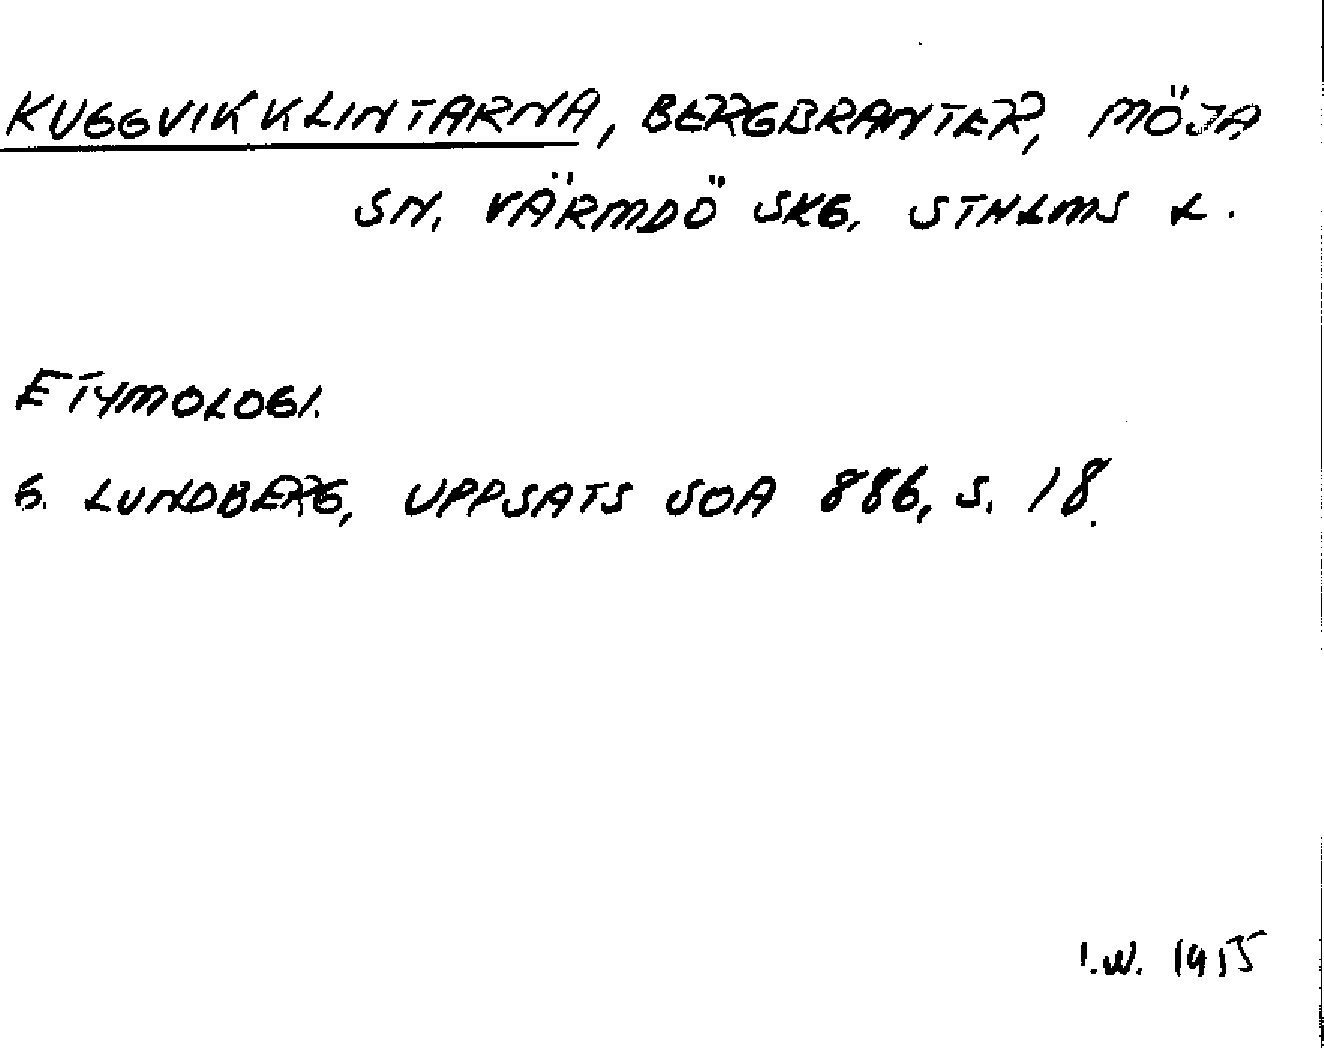 KUGGVIKKLINTARNA, BERGBRANTER, MÖJA
SN, VÄRMDÖ SKG, STHLMS L.
ETYMOLOGI.
G. LUNDBERG, UPPSATS SOA 886, S. 18.
I.W. 1955